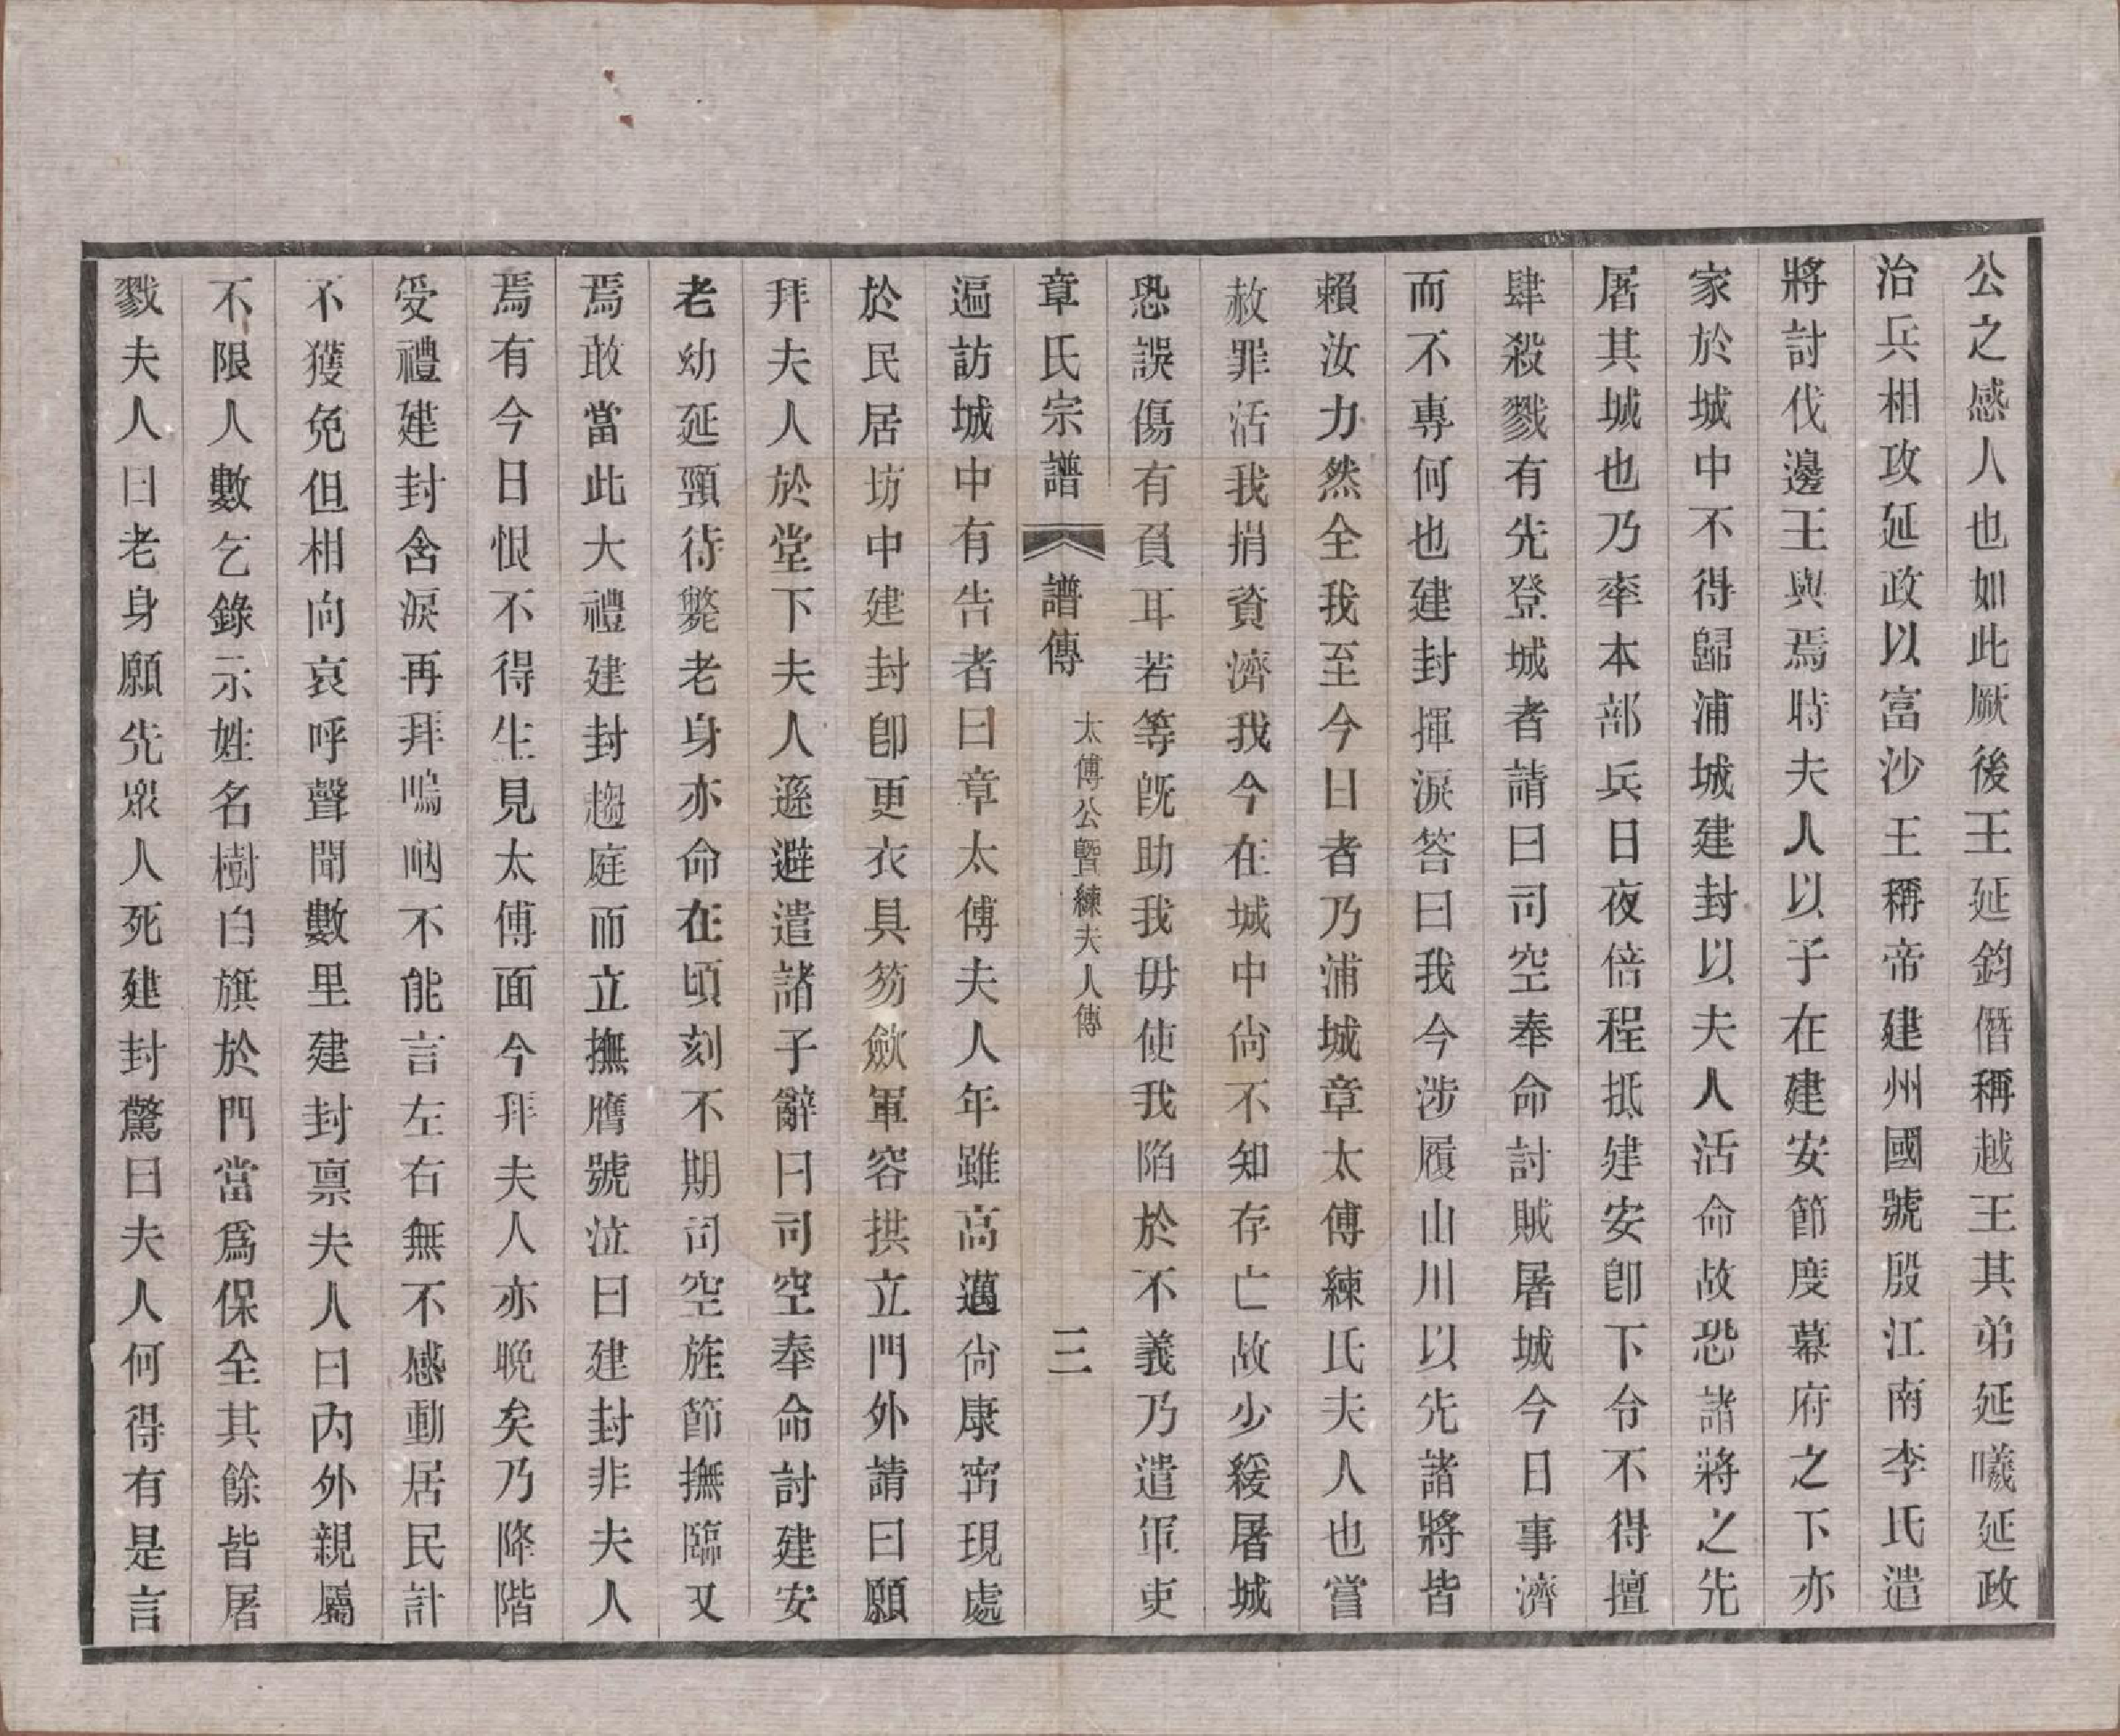 公之感人也如此厥後王延鈞僭稱越王其弟延曦延政
治兵相攻延政以富沙王稱帝建州國號殷江南李氏遣
將討伐邊王與焉時夫人以子在建安節度幕府之下亦
家於城中不得歸浦城建封以夫人活命故恐諸將之先
屠其城也乃率本部兵日夜倍程抵建安卽下令不得擅
肆殺戮有先登城者請曰司空奉命討賊屠城今日事濟
而不專何也建封揮淚答曰我今涉履山川以先諸將皆
賴汝力然全我至今日者乃浦城章太傅練氏夫人也嘗
赦罪活我捐資濟我今在城中尙不知存亡故少緩屠城
恐誤傷有負耳若等旣助我毋使我陷於不義乃遣軍吏
章氏宗譜 譜傳 太傅公暨練夫人傳 三
遍訪城中有告者曰章太傅夫人年雖高邁尙康甯現處
於民居坊中建封卽更衣具笏歛軍容拱立門外請曰願
拜夫人於堂下夫人遜避遣諸子辭曰司空奉命討建安
老幼延頸待斃老身亦命在頃刻不期司空旌節撫臨又
焉敢當此大禮建封趨庭而立撫膺號泣曰建封非夫人
焉有今日恨不得生見太傅面今拜夫人亦晚矣乃降階
受禮建封含淚再拜嗚咽不能言左右無不感動居民計
不獲免但相向哀呼聲聞數里建封禀夫人曰內外親屬
不限人數乞錄示姓名樹白旗於門當爲保全其餘皆屠
戮夫人曰老身願先眾人死建封驚曰夫人何得有是言